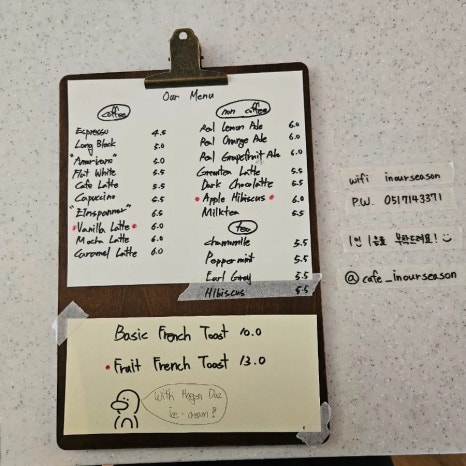 Our Menu
coffee
Espresso 4.5
Long Black 5.0
"Americano" 5.0
Flat White 5.5
Cafe Latte 5.5
Capuccino 5.5
"Einspanner" 6.5
Vanilla Latte 6.0
Mocha Latte 6.0
Caramel Latte 6.0
non coffee
Real Lemon Ade 6.0
Real Orange Ade 6.0
Real Grapefruit Ade 6.0
Greentea Latte 5.5
Dark Chocolatte 5.5
Apple Hibiscus 6.0
Milktea 5.5
tea
chamomille 5.5
Peppermint 5.5
Earl Grey 5.5
Hibiscus 5.5
Basic French Toast 10.0
Fruit French Toast 13.0
With Hagen Daz
ice-cream!
wifi inourseason
P.W. 0517143371
1인 1음료 부탁드려요!
@cafe_inourseason